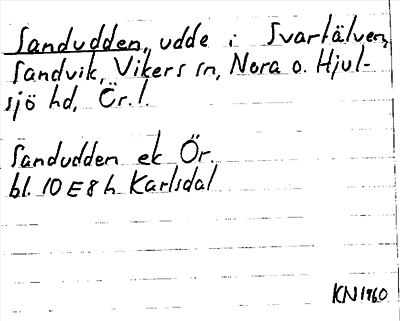 Sandudden, udde i Svartälven,
Sandvik, Vikers sn, Nora o. Hjul-
sjö hd, Ör. l.
Sandudden ek Ör.
bl. 10 E 8 h Karlsdal
KN 1960